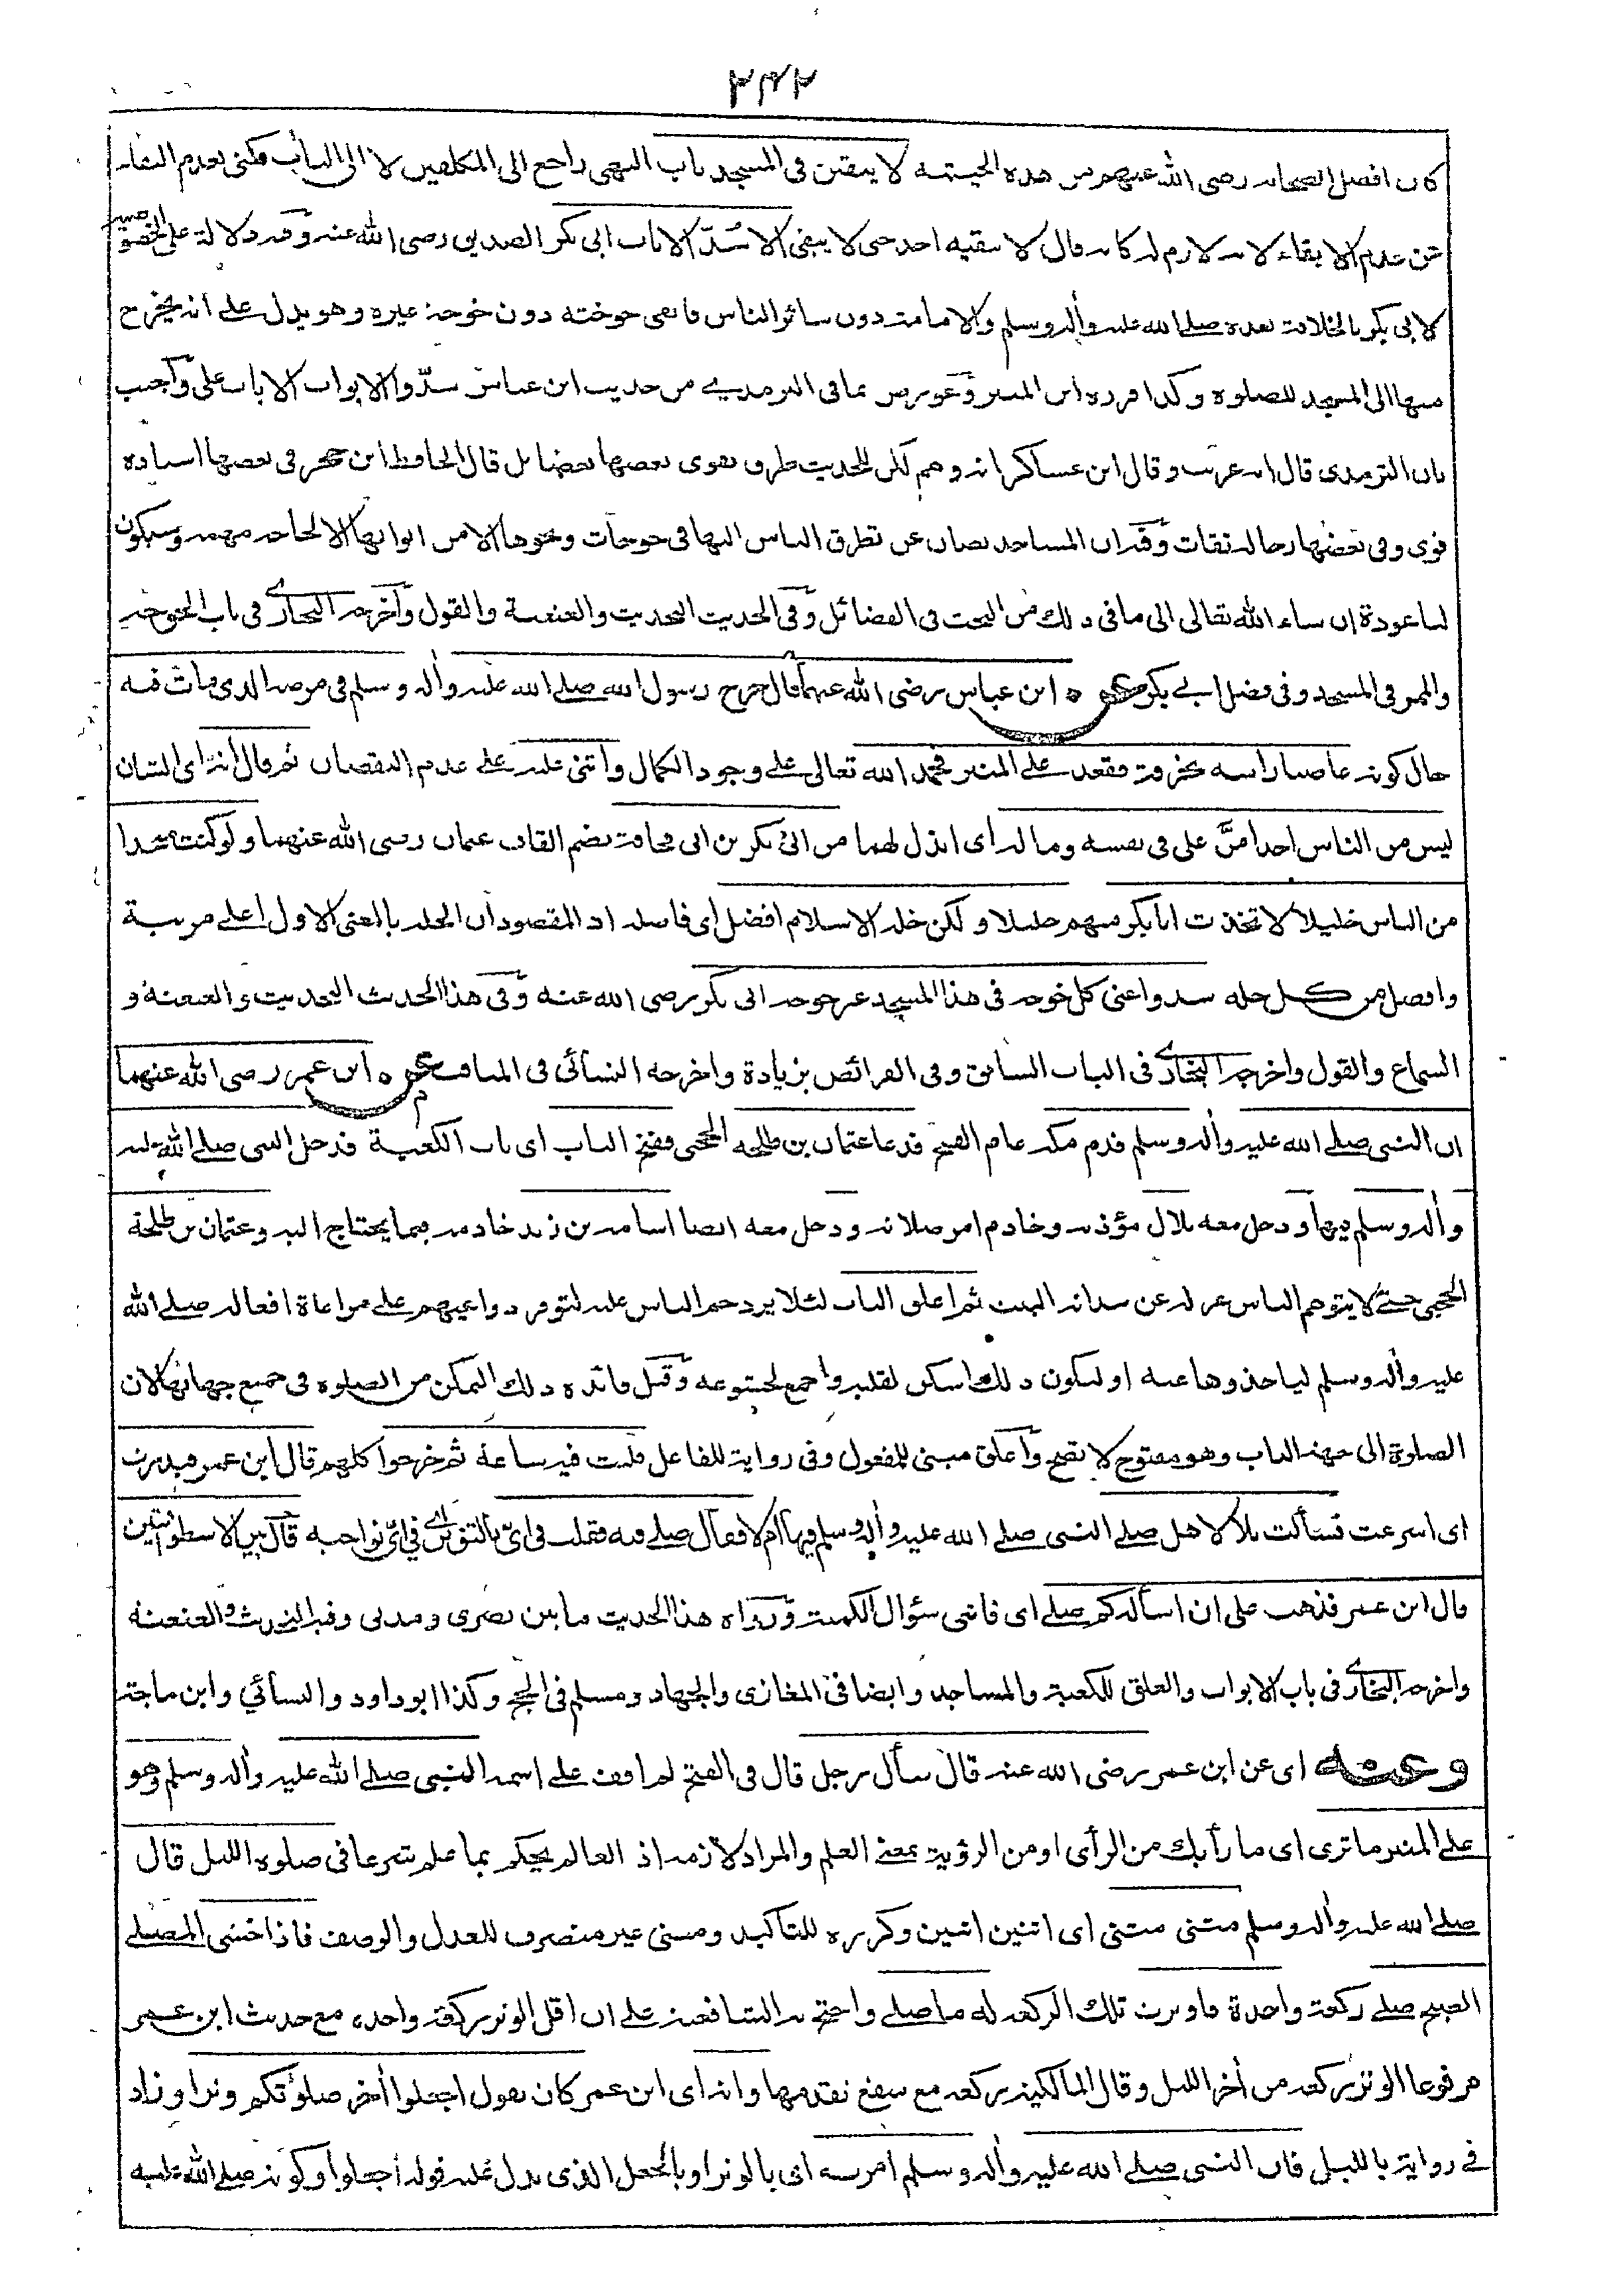 ٢٤٢
كان افضل الصحابه رضى الله عنهم من هذه الحيثيه لا يبقين فى المسجد باب النهى راجع الى المكلفين لا الى الباب فكنى بعدم البقاء
عن عدم الابقاء لانه لازم له كانه قال لا يبقيه احد حتى لا يبقى الا سُدّ الا باب ابى بكر الصديق رضى الله عنه وفيه دلالة على الخصوصية
لابى بكر بالخلافة بعده صلے الله عليه وأله وسلم والامامة دون سائر الناس فابقى خوخته دون خوخة غيره وهو يدل علے انه يخرج
منها الى المسجد للصلوة وكذا قرره ابن المنير وعورض بما فى الترمذے من حديث ابن عباس سدّوا الابواب الا باب على وأجيب
بان الترمذى قال انه غريب وقال ابن عساكر انه وهم لكن للحديث طرق يقوى بعضها بعضا بل قال الحافظ ابن حجر فى بعضها اسناده
قوى وفى بعضها رجاله ثقات وفيه ان المساجد تصان عن تطرق الناس اليها فى خوخات ونحوها الا من ابوابها الا لحاجة مهمة وسيكون
لنا عودة ان شاء الله تعالى الى ما فى ذلك من البحث فى الفضائل وفى الحديث التحديث والعنعنة والقول وأخرجه البخارے فى باب الخوخة
والممر فى المسجد وفى فضل ابے بكر عن ه ابن عباس رضى الله عنهما قال خرج رسول الله صلے الله عليه وأله وسلم فى مرضه الذى مات فيه
حال كونه عاصبا راسه بخرقة فقعد علے المنبر فحمد الله تعالى علے وجود الكمال واثنى عليه علے عدم النقصان ثم قال انه اى الشان
ليس من الناس احد امنَّ على فى نفسه وماله اى ابذل لهما من ابى بكر بن ابى قحافة بضم القاف عثمان رضى الله عنهما ولو كنت متخذا
من الناس خليلا لاتخذت ابا بكر منهم خليلا ولكن خلة الاسلام افضل اى فاضلة اذ المقصود ان الخلة بالمعنى الاول اعلے مرتبة
وافضل من كل خلة سدوا عنى كل خوخة فى هذا المسجد غير خوخة ابى بكر رضى الله عنه وفى هذا الحديث التحديث والعنعنة و
السماع والقول واخرجه البخارے فى الباب السابق وفى الفرائض بزيادة واخرجه النسائى فى المناقب عن ه ابن عمر رضى الله عنهما
ان النبى صلے الله عليه وأله وسلم قدم مكة عام الفتح فدعا عثمان بن طلحة الحجبى ففتح الباب اى باب الكعبة فدخل النبى صلے الله عليه
وأله وسلم فيها ودخل معه بلال مؤذنه وخادم امر صلاته ودخل معه ايضا اسامة بن زيد خادمه فيما يحتاج اليه وعثمان بن طلحة
الحجبى حتے لا يتوهم الناس عزله عن سدانة البيت ثم اغلق الباب لئلا يزدحم الناس عليه لتوفر دواعيهم علے مراعاة افعاله صلے الله
عليه وأله وسلم لياخذوها عنه او ليكون ذلك اسكن لقلبه واجمع لخشوعه وقيل فائدة ذلك التمكن من الصلوة فى جميع جهاتها لان
الصلوة الى جهة الباب وهو مفتوح لا تصح وأغلق مبنى للمفعول وفى رواية للفاعل فلبث فيه ساعة ثم خرجوا كلهم قال ابن عمر فبدرت
اى اسرعت فسألت بلالا هل صلے النبى صلے الله عليه وأله وسلم فيها أم لا فقال صلے فيه فقلت فى اىّ بالتنوين اے فى اىّ نواحيه قال بين الاسطوانتين
قال ابن عمر فذهب على ان اسأله كم صلے اى فاتنى سؤال الكمية ورواة هذا الحديث ما بين بصرى ومدنى وفيه التحديث والعنعنة
واخرجه البخارے فى باب الابواب والغلق للكعبة والمساجد وايضا فى المغازى والجهاد ومسلم فى الحج وكذا ابو داود والنسائي وابن ماجة
وعنه اى عن ابن عمر رضى الله عنه قال سأل رجل قال فى الفتح لم اقف علے اسمه النبى صلے الله عليه وأله وسلم وهو
علے المنبر ما ترى اى ما رأيك من الرأى او من الرؤية بمعنے العلم والمراد لازمه اذ العالم يحكم بما علم شرعا فى صلوة الليل قال
صلے الله عليه وأله وسلم مثنى مثنى اى اثنين اثنين وكرره للتاكيد ومثنى غير منصرف للعدل والوصف فاذا خشى المصلے
الصبح صلے ركعة واحدة فاوترت تلك الركعة له ما صلے واحتج به الشافعية علے ان اقل الوتر ركعة واحدة مع حديث ابن عمر
مرفوعا الوتر ركعة من أخر الليل وقال المالكية ركعة مع شفع تقدمها وانه اى ابن عمر كان يقول اجعلوا أخر صلوتكم وترا وزاد
فے رواية بالليل فان النبى صلے الله عليه وأله وسلم امر به اى بالوتر او بالجعل الذى يدل عليه قوله اجعلوا وكونه صلے الله عليه